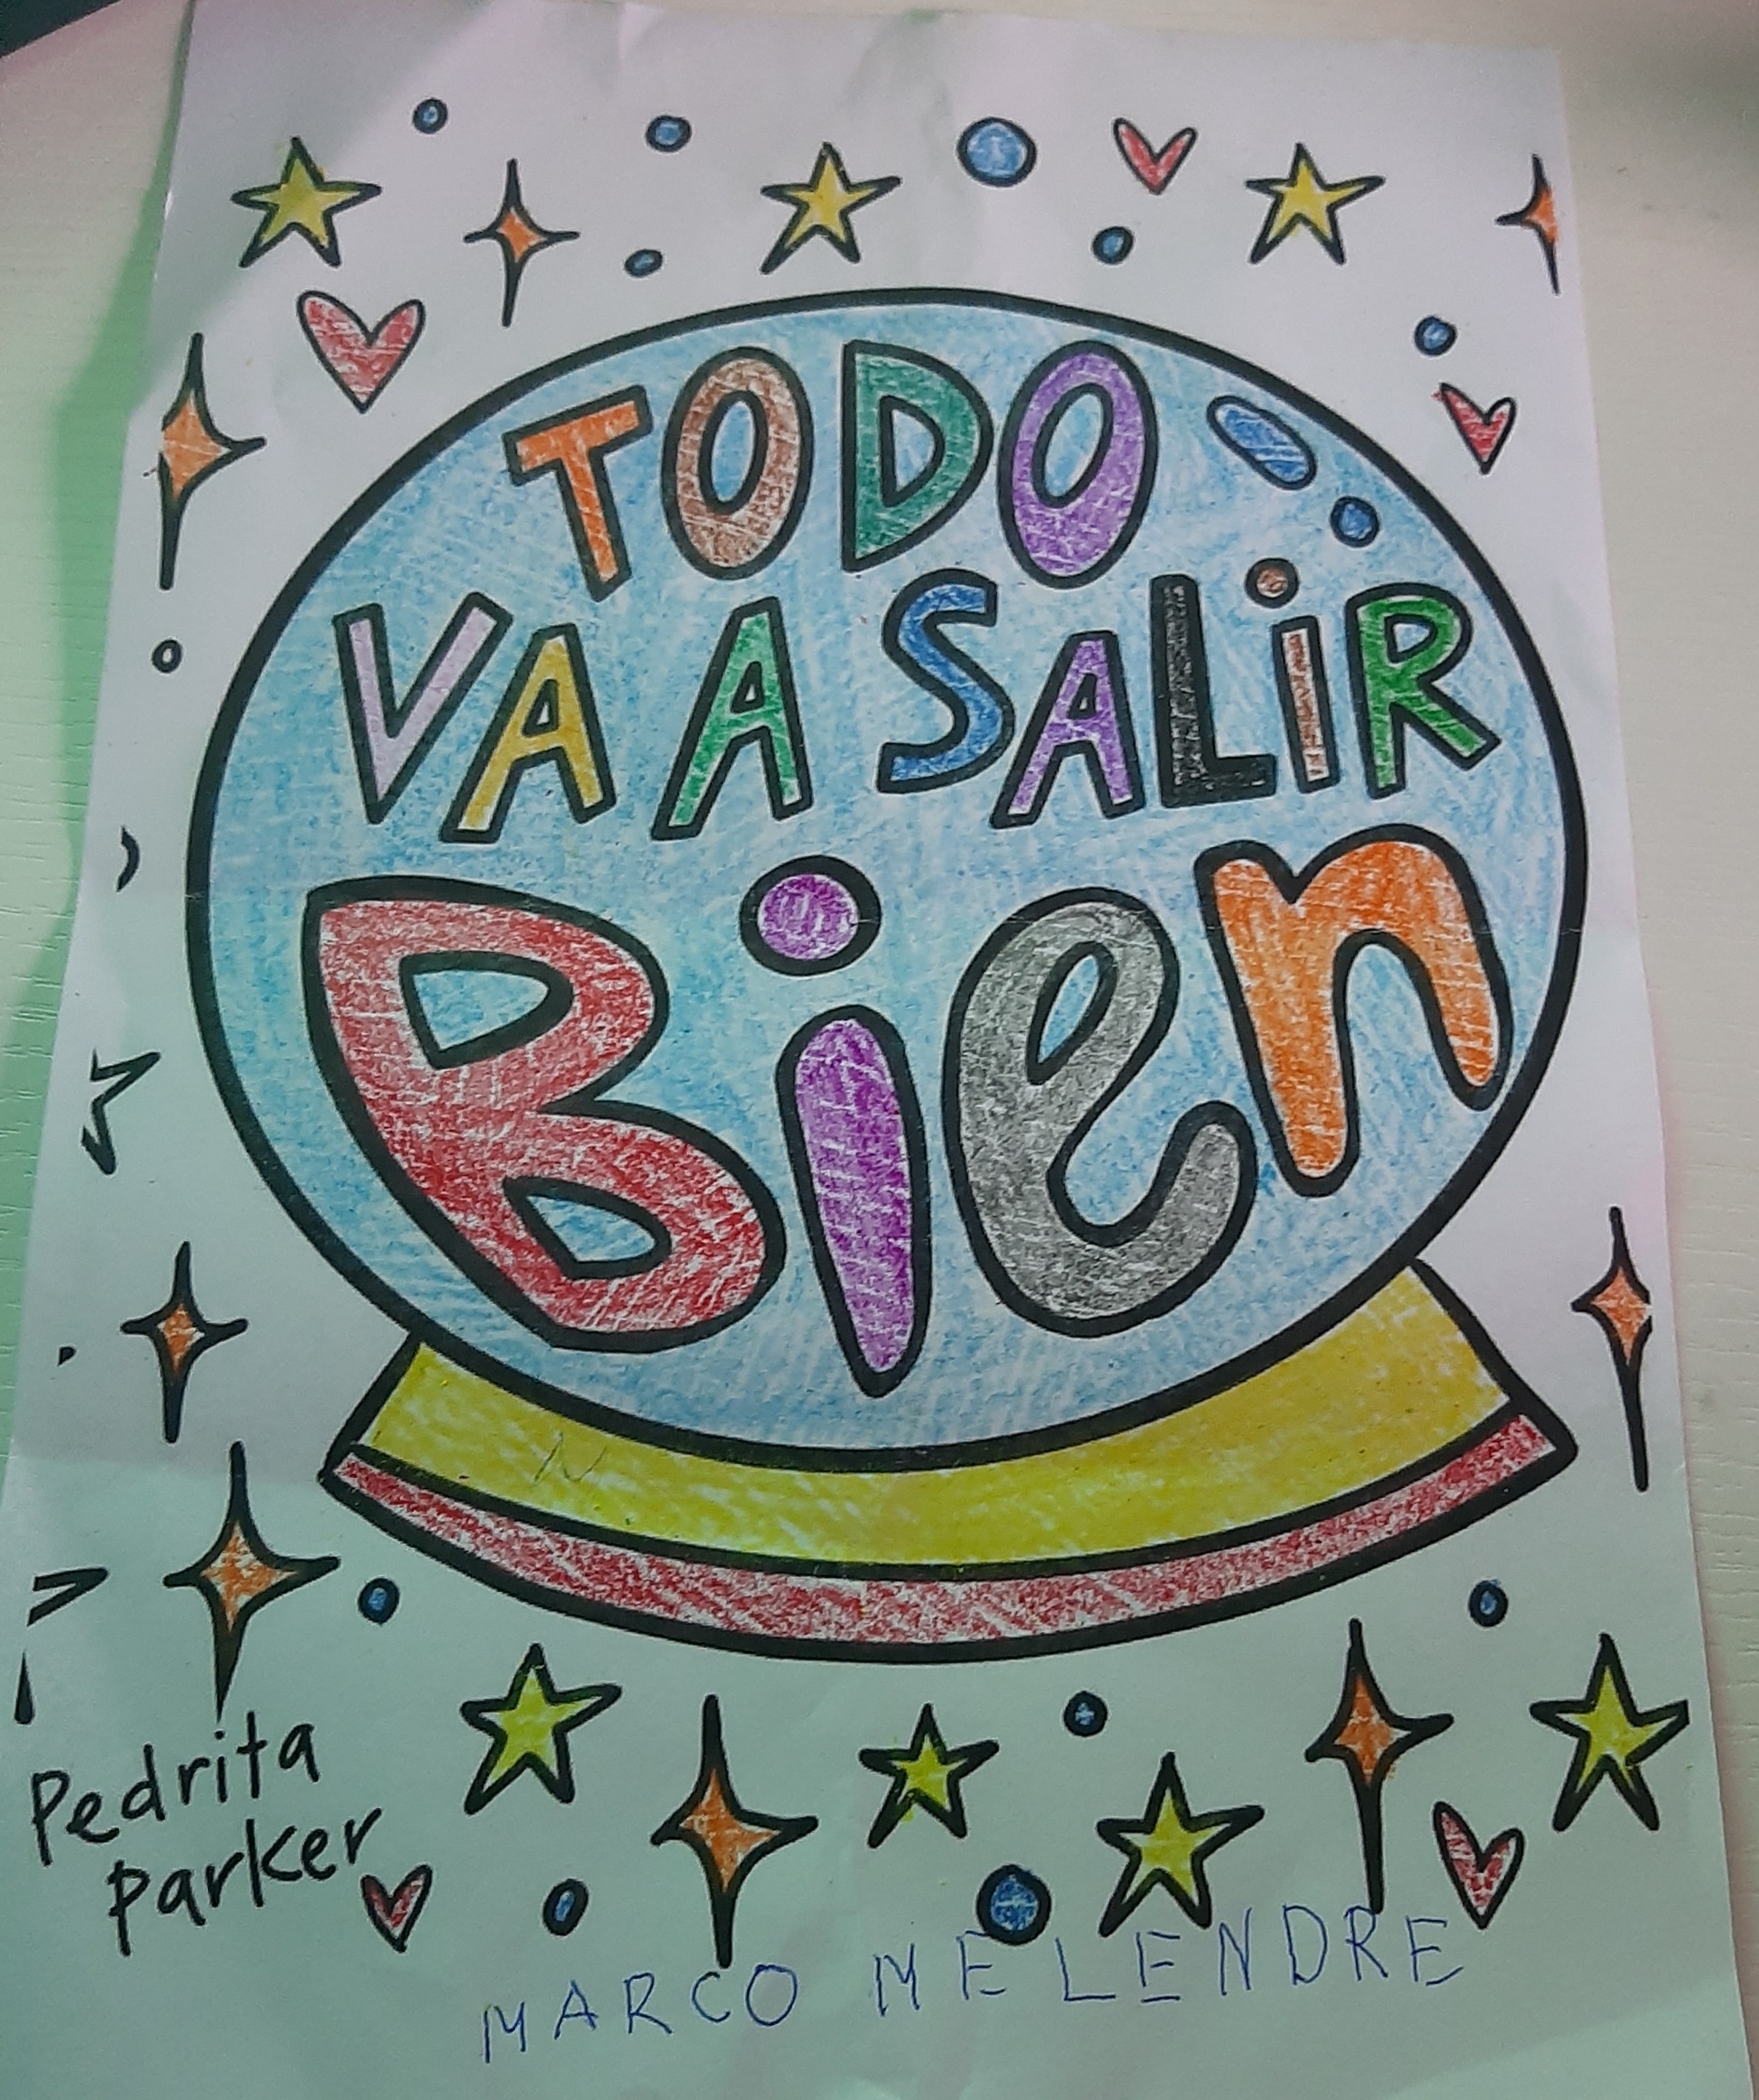 TODO
VA A SALiR
Bien
Pedrita
Parker
MARCO MELENDRE